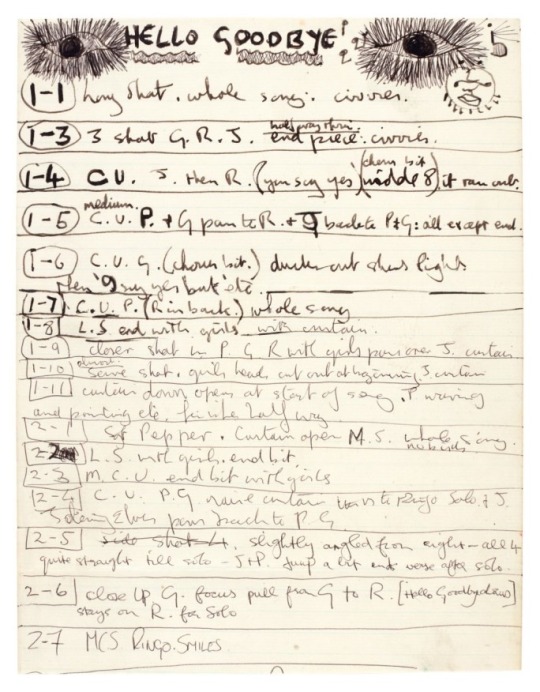 HELLO GOODBYE
1-1 long shot. whole song. civvies.
half way thru.
1-3 3 shot G. R. J. end piece. civvies.
(chorus bit)
1-4 C.U. J. then R. (you say yes) middle 8) it ran out.
medium.
1-5 C.U. P. + G pan to R. + J back to P+G: all except end.
1-6 C.U. G. (chorus bit.) out shows lights
then 'I say yes but etc.
1-7 C.U. P. (R in back.) whole song
1-8 L.S end with girls with curtain.
1-9 closer shot on P. G R with girls pans over J. curtain
almost
1-10 Same shot. girls heads cut out at beginning J. curtain
1-11 curtain down opens at start of song. P waving
and pointing etc. half way.
2-1 Sgt Pepper. Curtain open M.S. whole song.
2-2 L.S. with girls. end bit
2-3 M.C.U. end bit with girls
2-4 C. U. P.G curtain to Ringo Solo. + J.
pans back to P. G
2-5 side shot 4. slightly angled from right - all 4
quite straight till solo - J+P. Jump a lot and worse after solo.
2-6 close up G. focus pull from G to R. [Hello Goodbye]
stays on R. for Solo
2-7 MCS RINGO. SMILES